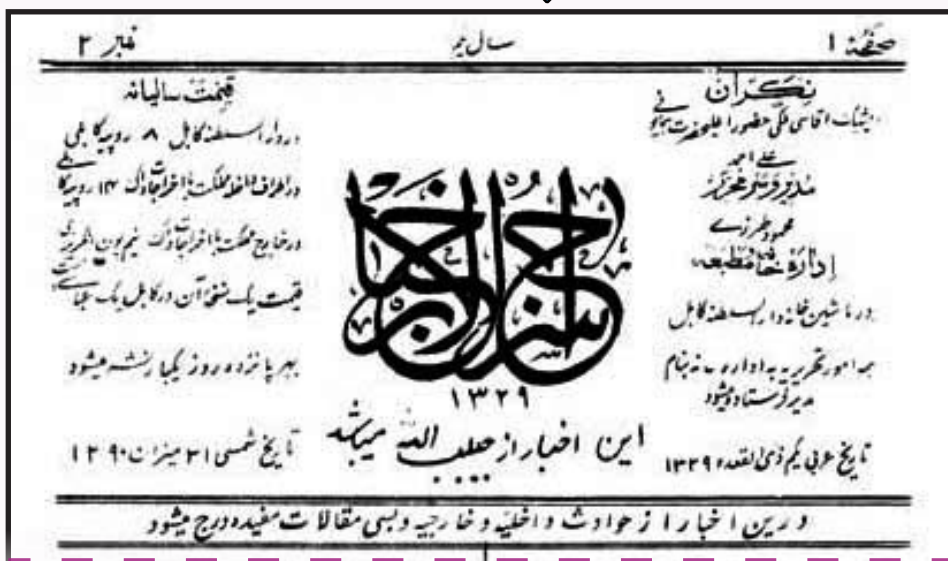 صحفهٔ ۱
سال
نمبر ۲
نگران
ایشیک اقاسی ملکی حضور اعلیحضرت همایونی
علی احمد
مدیر و سرمحرر
محمود طرزی
ادارهٔ خانهٔ مطبعه
در ماشین خانه دارالسلطنه کابل
همه امور تحریریه به اداره بنام
مدیر فرستاده میشود
تاریخ عربی یکم ذی القعده ۱۳۲۹
سراج الاخبار
۱۳۲۹
این اخبار از میباشد
قیمت سالیانه
در دارالسلطنه کابل ۸ روپیه کابلی
در اطراف داخله مملکت با اخراجات داک
در خارج مملکت با اخراجات داک نیم پون انگریزی
قیمت یک نسخه آن در کابل یک عباسی است
بهر پانزده روز یکبار نشر میشود
تاریخ شمسی ۳۱ میزان ۱۲۹۰
درین اخبار از حوادث داخلیه و خارجیه و بسی مقالات مفیده درج میشود